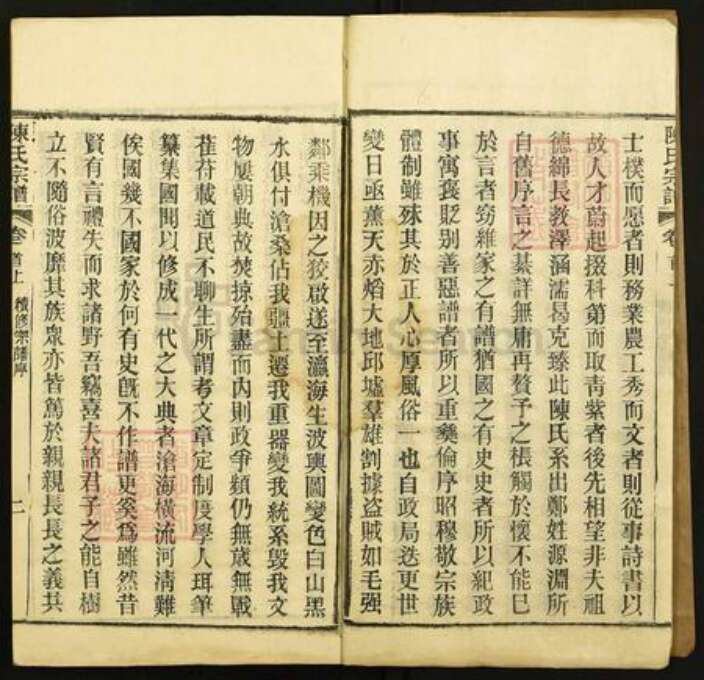 陳氏宗譜 卷首上
士樸而愿者則務業農工秀而文者則從事詩書以
故人才蔚起掇科第而取青紫者後先相望非夫祖
德綿長教澤涵濡曷克臻此陳氏系出鄭姓源淵所
自舊序言之綦詳無庸再贅予之棖觸於懷不能已
於言者竊維家之有譜猶國之有史史者所以紀政
事寓褒貶别善惡譜者所以重彝倫序昭穆敬宗族
體制雖殊其於正人心厚風俗一也自政局迭更世
變日亟薰天赤熖大地邱墟羣雄割據盗賊如毛强
鄰乘機因之狡啟遂至瀛海生波輿圖變色白山黑
水俱付滄桑佔我疆土遷我重器變我統系毁我文
物屢朝典故焚掠殆盡而内則政爭纇仍無歲無戰
萑苻載道民不聊生所謂考文章定制度學人珥筆
纂集國聞以修成一代之大典者滄海横流河清難
俟國幾不國家於何有史旣不作譜更奚爲雖然昔
賢有言禮失而求諸野吾竊喜夫諸君子之能自樹
立不隨俗波靡其族衆亦皆篤於親親長長之義共
陳氏宗譜 卷首上 續修宗譜序 二